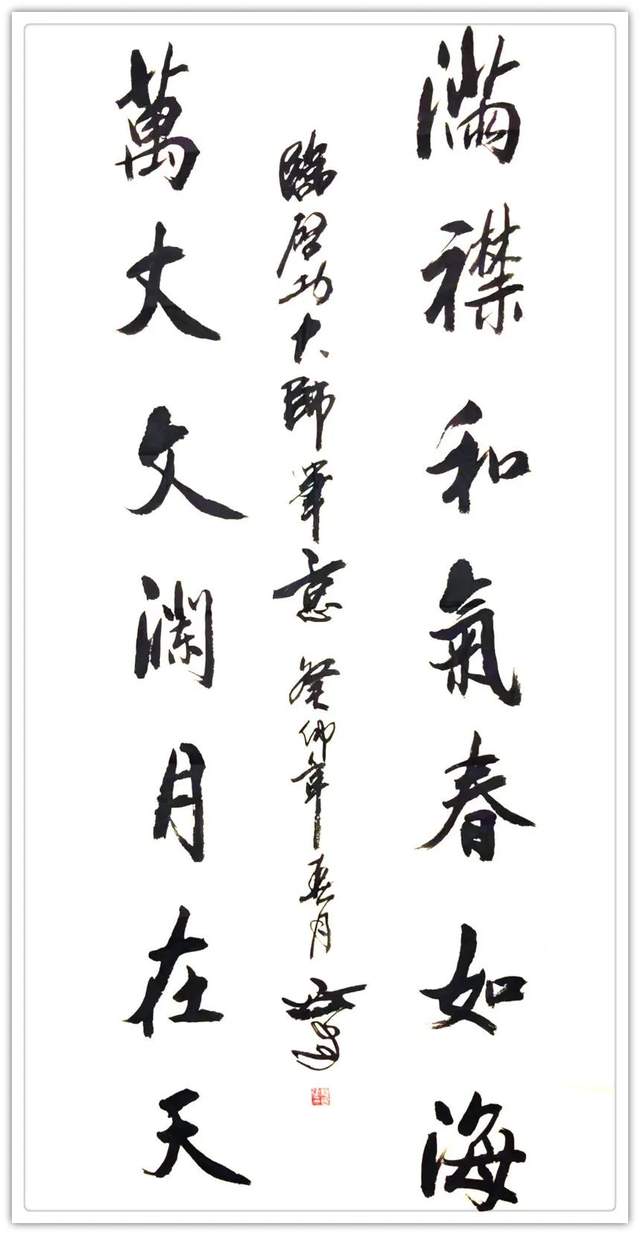 滿襟和氣春如海
臨啓功大師筆意 癸卯年春月
萬丈文瀾月在天